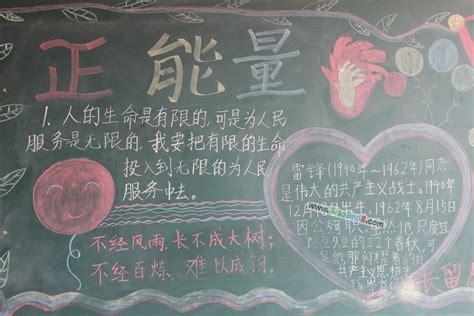 正能量
1. 人的生命是有限的,可是为人民
服务是无限的,我要把有限的生命
投入到无限的为人民
服务中去。
不经风雨,长不成大树;
不经百炼,难以成钢。
雷锋(1940年~1962年)同志
是伟大的共产主义战士。1940年
12月
出生,1962年8月15日
因公殉职
他只度过
的22个春秋,可
是他那闪耀着的共
产主义思想光
长留